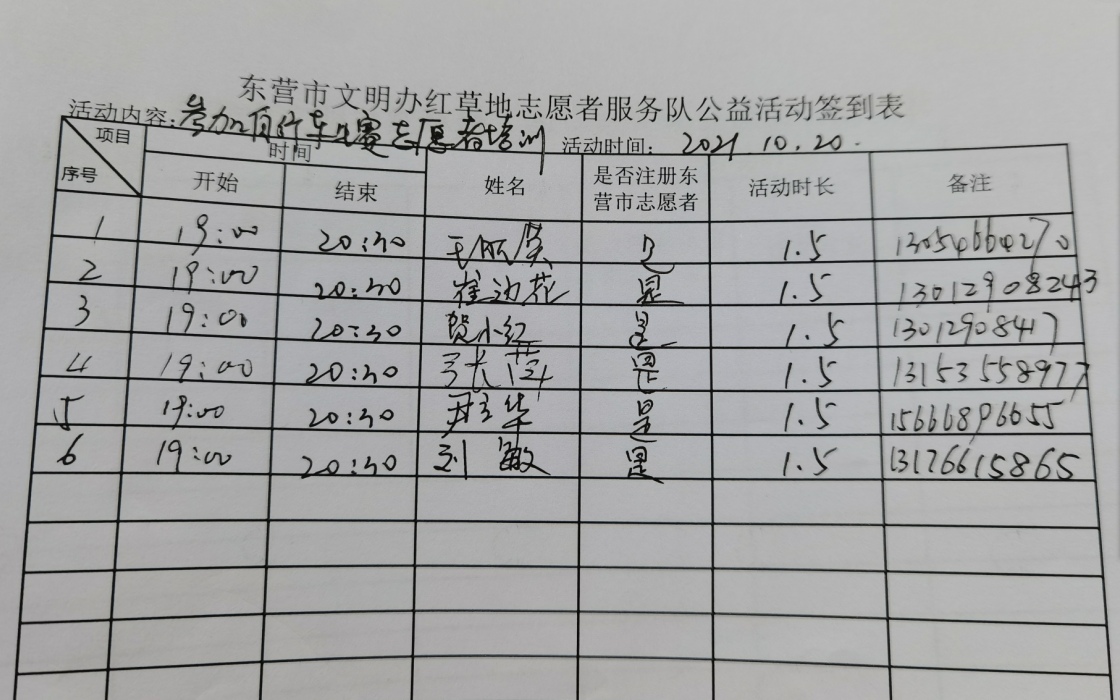 东营市文明办红草地志愿者服务队公益活动签到表
活动内容:参加自行车比赛志愿者培训 活动时间: 2021 10.20.
项目 序号 时间 开始 结束 姓名 是否注册东营市志愿者 活动时长 备注
1 19:00 20:30 王丽英 是 1.5 13054664270
2 19:00 20:30 崔边花 是 1.5 13012908243
3 19:00 20:30 贺小红 是 1.5 13012908417
4 19:00 20:30 弓长萍 是 1.5 13153558977
5 19:00 20:30 华 是 1.5 15666896655
6 19:00 20:30 刘敏 是 1.5 13176615865